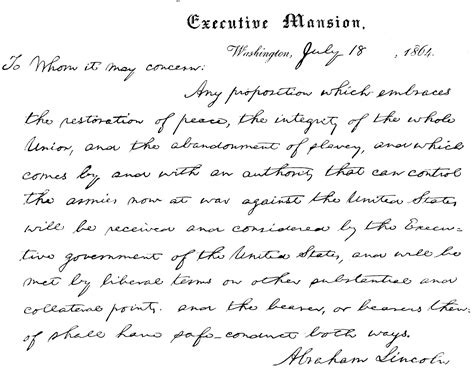 Executive Mansion,
Washington, July 18, 1864.
To Whom it may concern:
Any proposition which embraces
the restoration of peace, the integrity of the whole
Union, and the abandonment of slavery, and which
comes by and with an authority that can control
the armies now at war against the United States
will be received and considered by the Execu-
tive government of the United States, and will be
met by liberal terms on other substantial and
collateral points. and the bearer, or bearers there-
of shall have safe-conduct both ways.
Abraham Lincoln